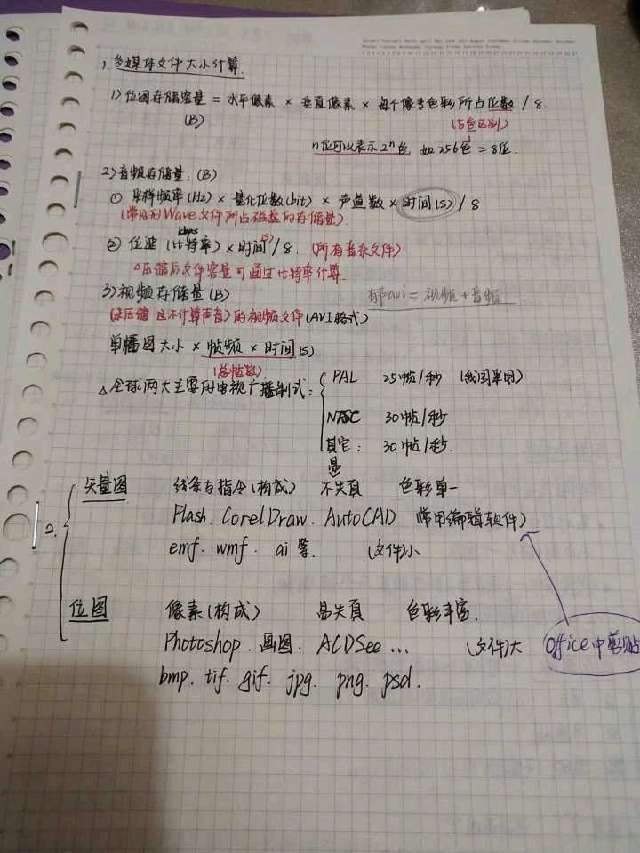 1, 多媒体文件大小计算.
1) 位图存储容量 = 水平像素 × 垂直像素 × 每个像素色彩所占位数 / 8
(B)
(与色区别)
n位可以表示2ⁿ色 如256色 = 8位.
2) 音频存储量. (B)
① 采样频率(Hz) × 量化位数(bit) × 声道数 × 时间(s) / 8
(常见为Wave文件所占磁盘的存储量)
② 位速 (比特率) × 时间(s) / 8. (所有音乐文件)
△压缩后文件容量可通过比特率计算.
3) 视频存储量 (B)
有声avi = 视频 + 音频
(未压缩 且不计算声音) 的视频文件 (AVI格式)
单幅图大小 × 帧频 × 时间(s)
(总帧数)
△全球两大主要的电视广播制式:
PAL 25帧/秒 (我国采用)
NTSC 30帧/秒
其它: 30帧/秒
2.
矢量图 线条与指令(构成) 不失真 色彩单一
Flash. CorelDraw. AutoCAD (常用编辑软件)
emf. wmf. ai 等. (文件)小
位图 像素(构成) 易失真 色彩丰富.
Photoshop. 画图. ACDSee ... (文件)大 Office中剪贴
bmp. tif. gif. jpg. png. psd.